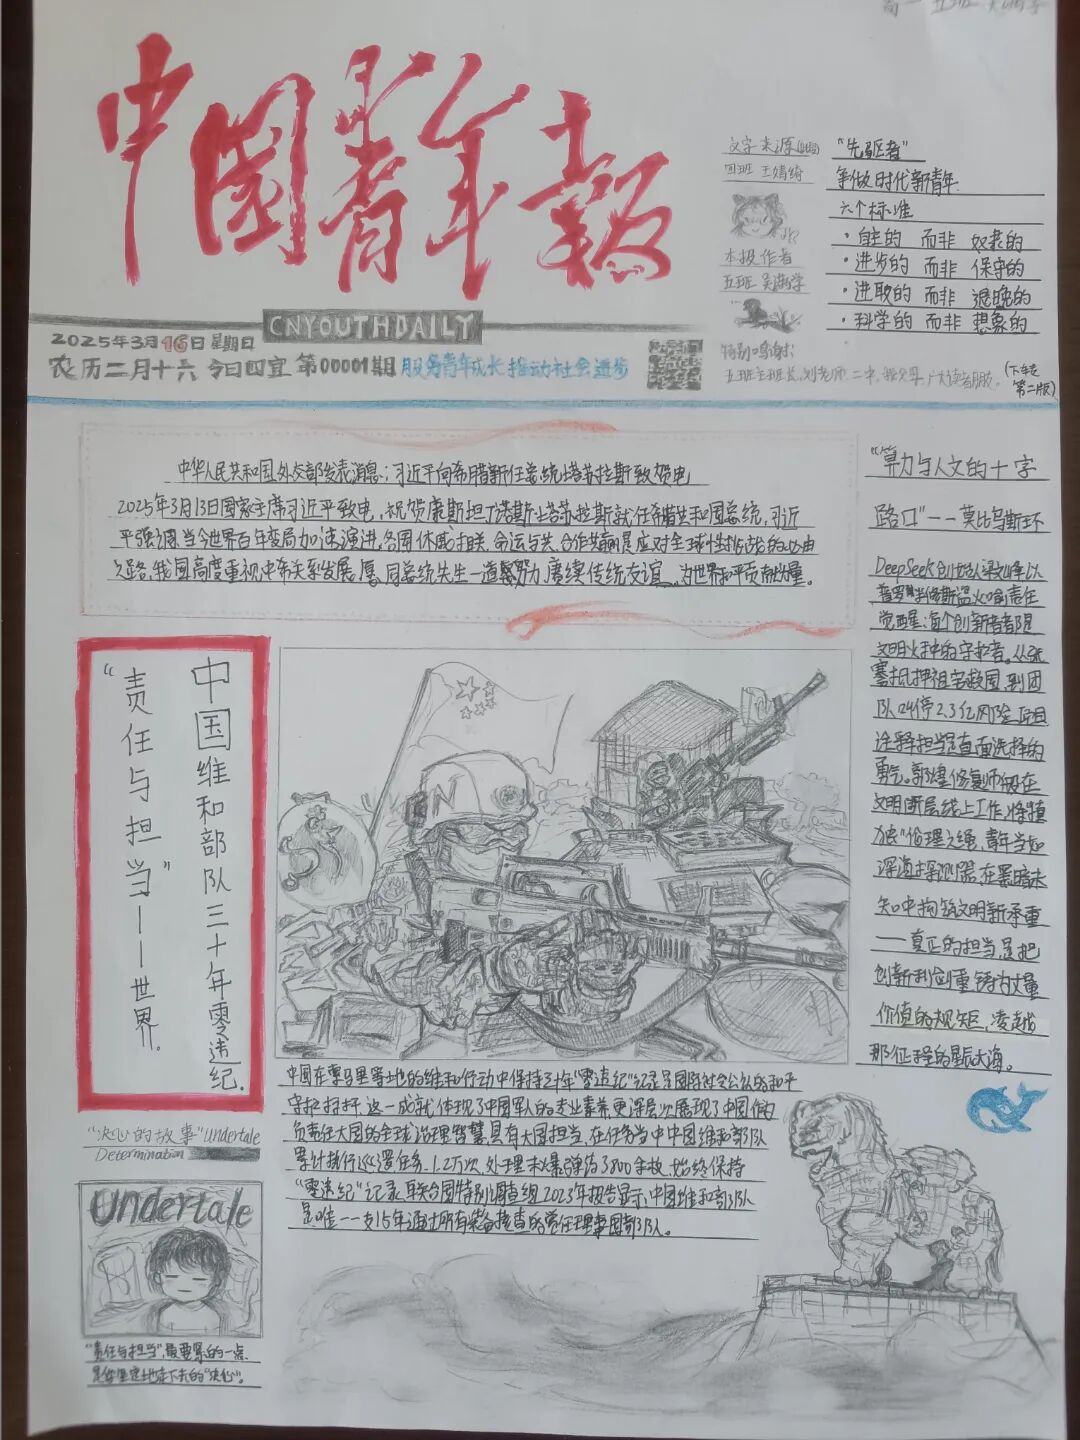 中国青年报
CNYOUTHDAILY
2025年3月16日 星期日
农历二月十六 今日四宜 第00001期 服务青年成长 推动社会进步
文字来源
四班 王
本报作者
五班 吴
特别鸣谢:
"先驱者"
争做时代新青年
六个标准
·自主的 而非 奴隶的
·进步的 而非 保守的
·进取的 而非 退隐的
·科学的 而非 想象的
(下转
第二版)
中华人民共和国外交部发表消息:习近平向希腊新任总统塔苏拉斯致贺电
2025年3月13日国家主席习近平致电,祝贺康斯坦丁诺斯·塔苏拉斯就任希腊共和国总统,习近
平强调,当今世界百年变局加速演进,各国休戚相联、命运与共,合作共赢是应对全球性挑战的必由
之路,我国高度重视中希关系发展,愿同总统先生一道努力,赓续传统友谊,为世界和平贡献力量。
中国维和部队三十年零违纪.
"责任与担当"——世界.
中国在马里等地的维和行动中保持三十年"零违纪"纪录,是国际社会公认的和平
守护标杆,这一成就体现了中国军人的专业素养,更深层次展现了中国作为
负责任大国的全球治理智慧,具有大国担当,在任务当中中国维和部队
累计执行巡逻任务1.2万次,处理未爆弹药3800余枚,始终保持
"零违纪"记录,联合国特别调查组2023年报告显示,中国维和部队
是唯一一支15年通过所有装备核查的常任理事国部队。
"算力与人文的十字
路口"——莫比乌斯环
DeepSeek创始人梁文峰以
普罗米修斯盗火喻责任
觉醒:每个创新者都是
文明火种的守护者。从张
謇抵押祖宅救国,到团
队叫停2.3亿风险项目
诠释担当是直面选择的
勇气。敦煌修复师般在
文明断层线上工作,
"伦理之绳,青年当如
深海探测器,在黑暗未
知中构筑文明新承重
——真正的担当,是把
创新利剑重铸为丈量
价值的规矩,凌越
那征程的星辰大海。
"决心的故事"Undertale
Determination
Undertale
"责任与担当",最要紧的一点
是坚定地走下去的"决心"。